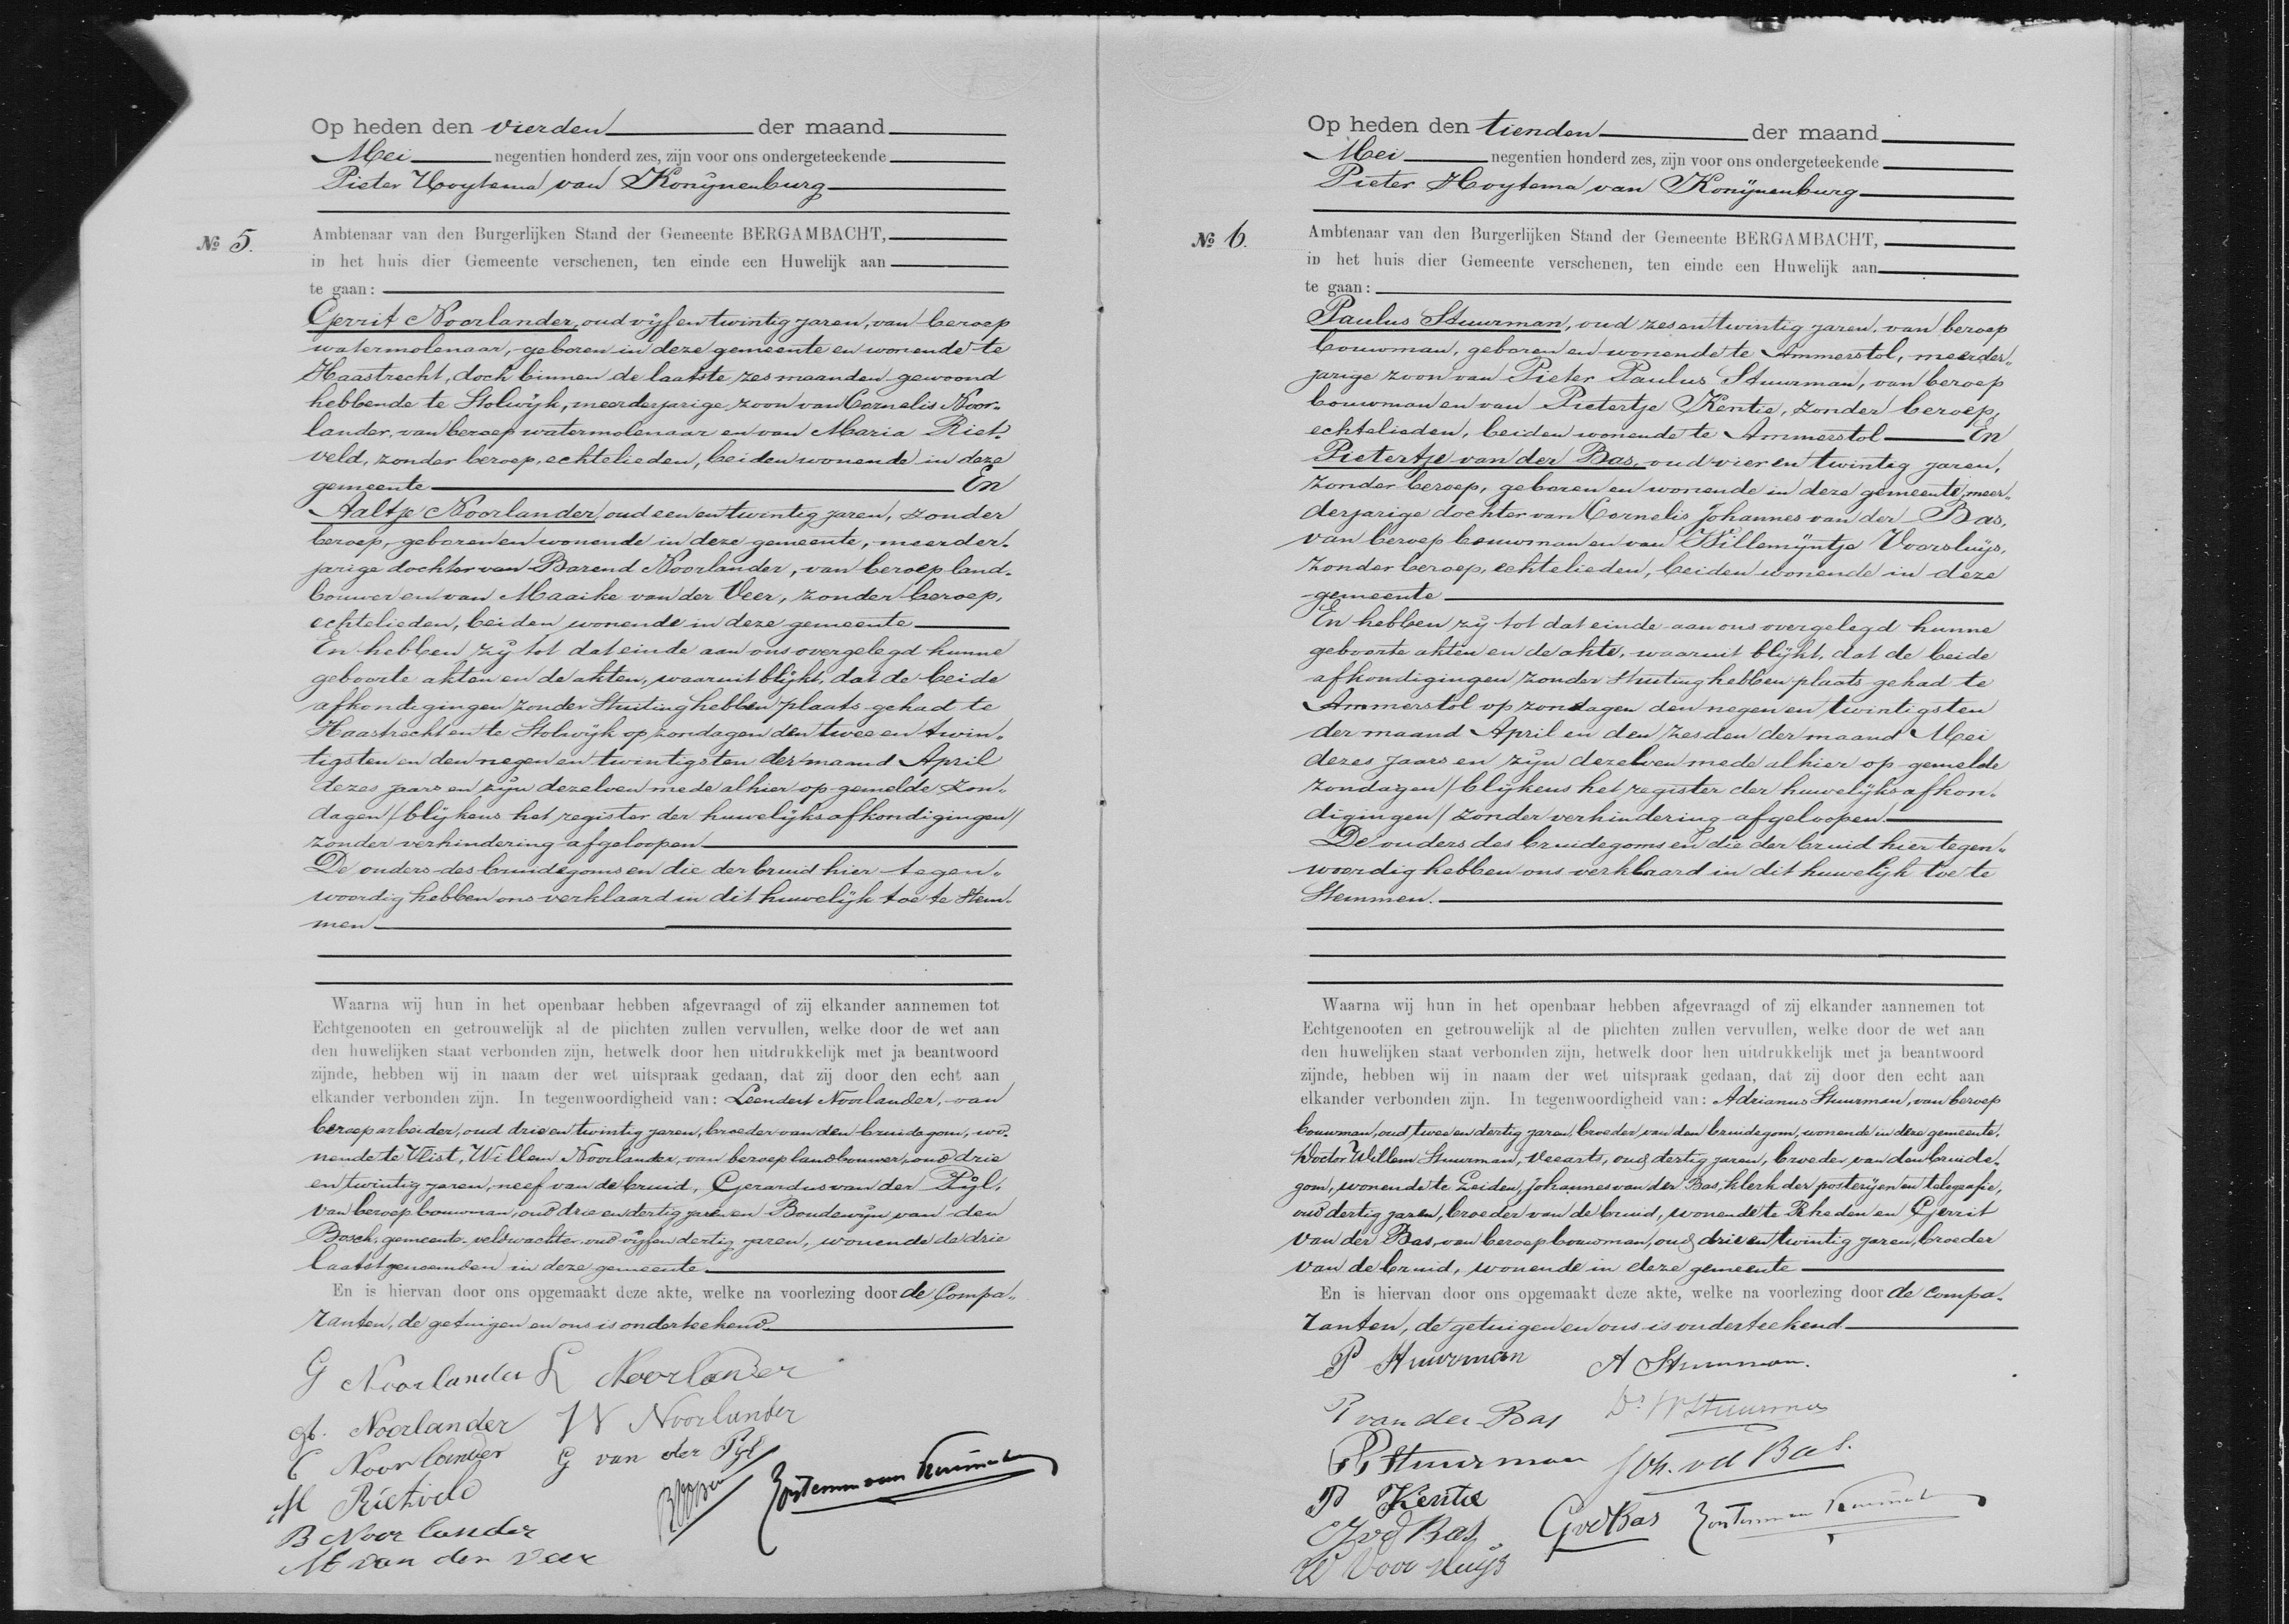 Op heden den vierden der maand
Mei negentien honderd zes, zijn voor ons ondergeteekende
Pieter Hoytema van Konijnenburg
No 5.
Ambtenaar van den Burgerlijken Stand der Gemeente BERGAMBACHT,
in het huis dier Gemeente verschenen, ten einde een Huwelijk aan
te gaan:
Gerrit Noorlander, oud vijf en twintig jaren, van beroep
watermolenaar, geboren in deze gemeente en wonende te
Haastrecht, doch binnen de laatste zes maanden gewoond
hebbende te Stolwijk, meerderjarige zoon van Cornelis Noor„
lander, van beroep watermolenaar en van Maria Riet„
veld, zonder beroep, echtelieden, beiden wonende in deze
gemeente En
Aaltje Noorlander, oud een en twintig jaren, zonder
beroep, geboren en wonende in deze gemeente, meerder„
jarige dochter van Barend Noorlander, van beroep land„
bouwer en van Maaike van der Veer, zonder beroep,
echtelieden, beiden wonende in deze gemeente
En hebben zij tot dat einde aan ons overgelegd hunne
geboorte akten en de akten, waaruit blijkt, dat de beide
afkondigingen zonder stuiting hebben plaats gehad te
Haastrecht en te Stolwijk op zondagen den twee en twin„
tigsten en den negen en twintigsten der maand April
dezes jaars en zijn dezelven mede alhier op gemelde zon„
dagen / blijkens het register der huwelijksafkondigingen /
zonder verhindering afgeloopen
De ouders des bruidegoms en die der bruid hier tegen„
woordig hebben ons verklaard in dit huwelijk toe te stem„
men
Waarna wij hun in het openbaar hebben afgevraagd of zij elkander aannemen tot
Echtgenooten en getrouwelijk al de plichten zullen vervullen, welke door de wet aan
den huwelijken staat verbonden zijn, hetwelk door hen uitdrukkelijk met ja beantwoord
zijnde, hebben wij in naam der wet uitspraak gedaan, dat zij door den echt aan
elkander verbonden zijn. In tegenwoordigheid van: Leendert Noorlander, van
beroep arbeider, oud drie en twintig jaren, broeder van den bruidegom, wo„
nende te Vlist, Willem Noorlander, van beroep landbouwer, oud drie
en twintig jaren, neef van de bruid, Gerardus van der Pijl,
van beroep bouwman, oud drie en dertig jaren en Boudewijn van den
Bosch, gemeente-veldwachter oud vijf en dertig jaren, wonende de drie
laatstgenoemden in deze gemeente
En is hiervan door ons opgemaakt deze akte, welke na voorlezing door de Compa„
ranten, de getuigen en ons is onderteekend.
G Noorlander L Noorlander
A. Noorlander W Noorlander
C Noorlander G van der Pijl
M Rietveld
B Noorlander
M van der Veer
Op heden den tienden der maand
Mei negentien honderd zes, zijn voor ons ondergeteekende
Pieter Hoytema van Konijnenburg
No 6.
Ambtenaar van den Burgerlijken Stand der Gemeente BERGAMBACHT,
in het huis dier Gemeente verschenen, ten einde een Huwelijk aan
te gaan:
Paulus Stuurman, oud zes en twintig jaren, van beroep
bouwman, geboren en wonende te Ammerstol, meerder„
jarige zoon van Pieter Paulus Stuurman, van beroep
bouwman en van Pietertje Kentie, zonder beroep,
echtelieden, beiden wonende te Ammerstol En
Pietertje van der Bas, oud vier en twintig jaren,
zonder beroep, geboren en wonende in deze gemeente, meer„
derjarige dochter van Cornelis Johannes van der Bas,
van beroep bouwman en van Willemijntje Voorsluijs,
zonder beroep, echtelieden, beiden wonende in deze
gemeente
En hebben zij tot dat einde aan ons overgelegd hunne
geboorte akten en de akte, waaruit blijkt, dat de beide
afkondigingen zonder stuiting hebben plaats gehad te
Ammerstol op zondagen den negen en twintigsten
der maand April en den zesden der maand Mei
dezes jaars en zijn dezelven mede alhier op gemelde
zondagen / blijkens het register der huwelijksafkon„
digingen / zonder verhindering afgeloopen.
De ouders des bruidegoms en die der bruid hier tegen„
woordig hebben ons verklaard in dit huwelijk toe te
stemmen.
Waarna wij hun in het openbaar hebben afgevraagd of zij elkander aannemen tot
Echtgenooten en getrouwelijk al de plichten zullen vervullen, welke door de wet aan
den huwelijken staat verbonden zijn, hetwelk door hen uitdrukkelijk met ja beantwoord
zijnde, hebben wij in naam der wet uitspraak gedaan, dat zij door den echt aan
elkander verbonden zijn. In tegenwoordigheid van: Adrianus Stuurman, van beroep
bouwman, oud twee en dertig jaren, broeder van den bruidegom, wonende in deze gemeente,
Doctor Willem Stuurman, veearts, oud dertig jaren, broeder van den bruide„
gom, wonende te Leiden, Johannes van der Bas, klerk der posterijen en telegrafie,
oud dertig jaren, broeder van de bruid, wonende te Rheden en Gerrit
van der Bas, van beroep bouwman, oud drie en twintig jaren, broeder
van de bruid, wonende in deze gemeente
En is hiervan door ons opgemaakt deze akte, welke na voorlezing door de compa„
ranten, de getuigen en ons is onderteekend
P Stuurman A Stuurman.
P van der Bas Dr W Stuurman
PP Stuurman Joh. vd Bas.
P Kentie
CJ vd Bas G vd Bas
W Voorsluijs